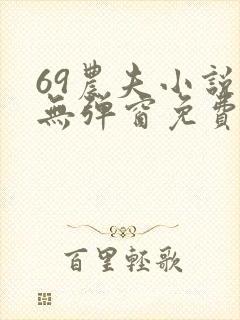 69農夫小説
無彈窗免費
百里輕歌